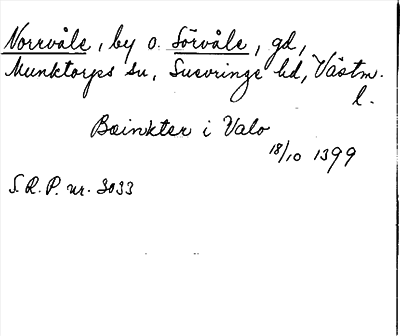 Norrvåle, by o. Sörvåle, gd,
Munktorps sn, Snevringe hd, Västm.
l.
Bænkter i Valo
18/10 1399
S.R.P. nr. 3033